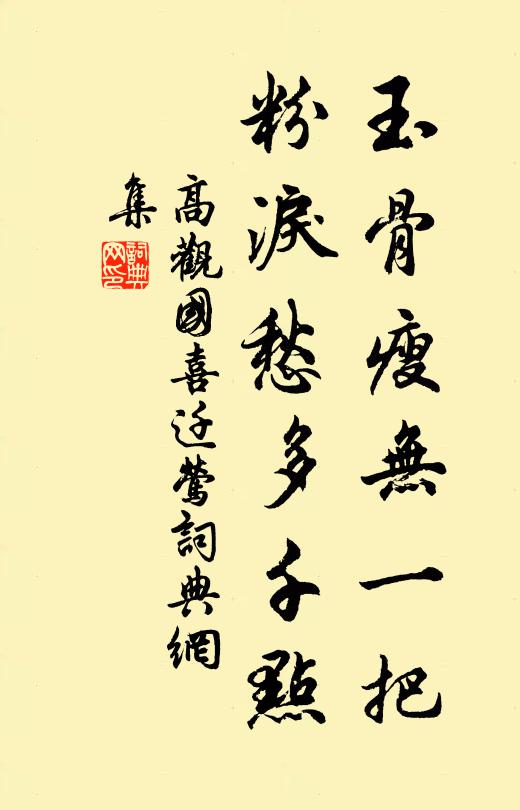 玉骨瘦無一把
粉淚愁多千點
高觀國喜迁鶯詞典網
集
詞典網印